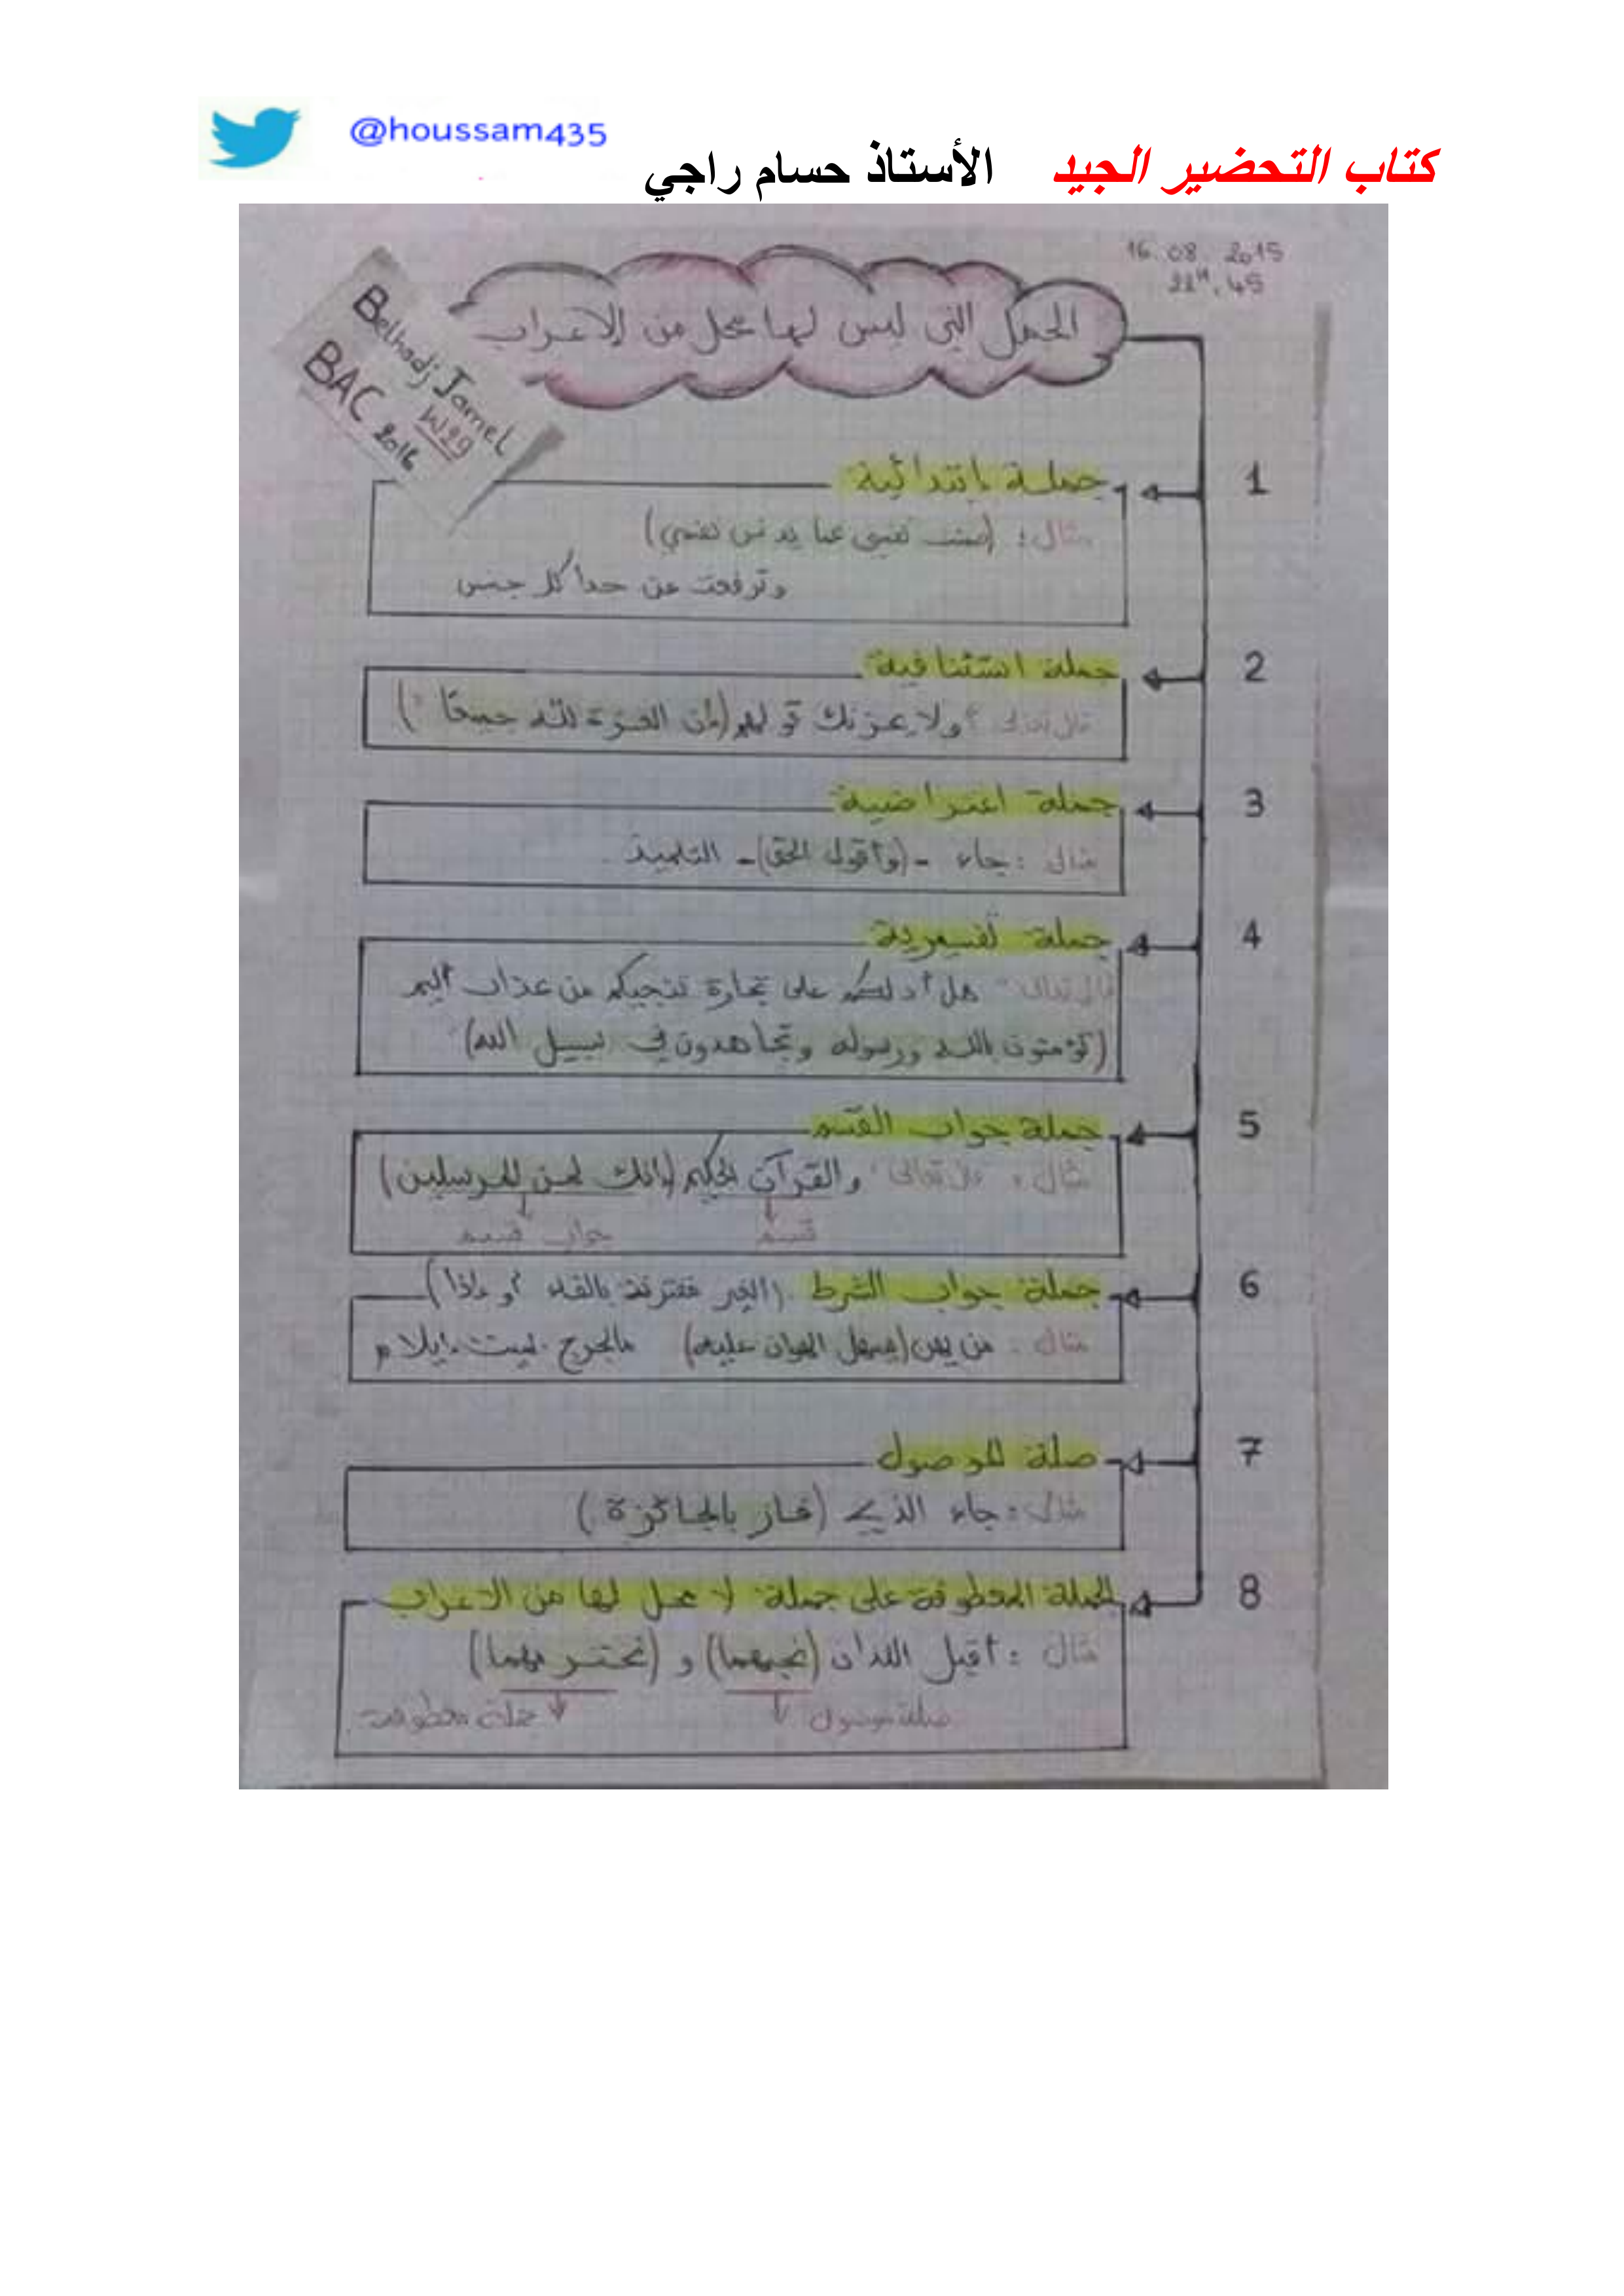 @houssam435
كتاب التحضير الجيد الأستاذ حسام راجي
16.08.2015
22H.45
Belhadj Jamel
W29
BAC 2016
الجمل التي ليس لها محل من الإعراب
1 جملة ابتدائية:
مثال: (صنت نفسي عما يدنس نفسي)
وترفعت عن جدا كل جبس
2 جملة استئنافية:
قال تعالى: "ولا يحزنك قولهم (إن العزة لله جميعا")
3 جملة اعتراضية:
مثال: جاء -(وأقول الحق)- التلميذ.
4 جملة تفسيرية:
قال تعالى: "هل أدلكم على تجارة تنجيكم من عذاب أليم
(تؤمنون بالله ورسوله وتجاهدون في سبيل الله)"
5 جملة جواب القسم
مثال: قال تعالى "والقرآن الحكيم (إنك لمن المرسلين)
قسم جواب قسم
6 جملة جواب الشرط (الغير مقترنة بالفاء أو إذا)
مثال: من يهن (يسهل الهوان عليه) مالجرح بميت إيلام
7 صلة الموصول
مثال: جاء الذي (فاز بالجائزة)
8 الجملة المعطوفة على جملة لا محل لها من الاعراب
مثال: أقبل اللذان (نحبهما) و (نحترمهما)
صلة موصول جملة معطوفة